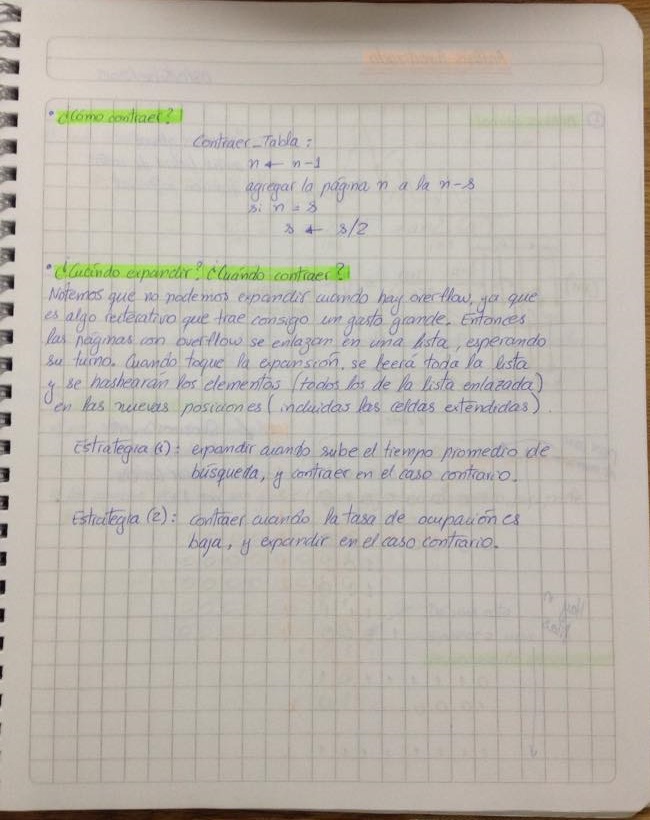 • ¿Cómo contraer?
Contraer_Tabla:
n ← n-1
agregar la página n a la n-s
si n = s
s ← s/2
• ¿Cuándo expandir? ¿Cuándo contraer?
Notemos que no podemos expandir cuando hay overflow, ya que
es algo reiterativo que trae consigo un gasto grande. Entonces
las páginas con overflow se enlazan en una lista, esperando
su turno. Cuando toque la expansión, se leerá toda la lista
y se hashearán los elementos (todos los de la lista enlazada)
en las nuevas posiciones (incluidas las celdas extendidas).
Estrategia (1): expandir cuando sube el tiempo promedio de
búsqueda, y contraer en el caso contrario.
Estrategia (2): contraer cuando la tasa de ocupación es
baja, y expandir en el caso contrario.